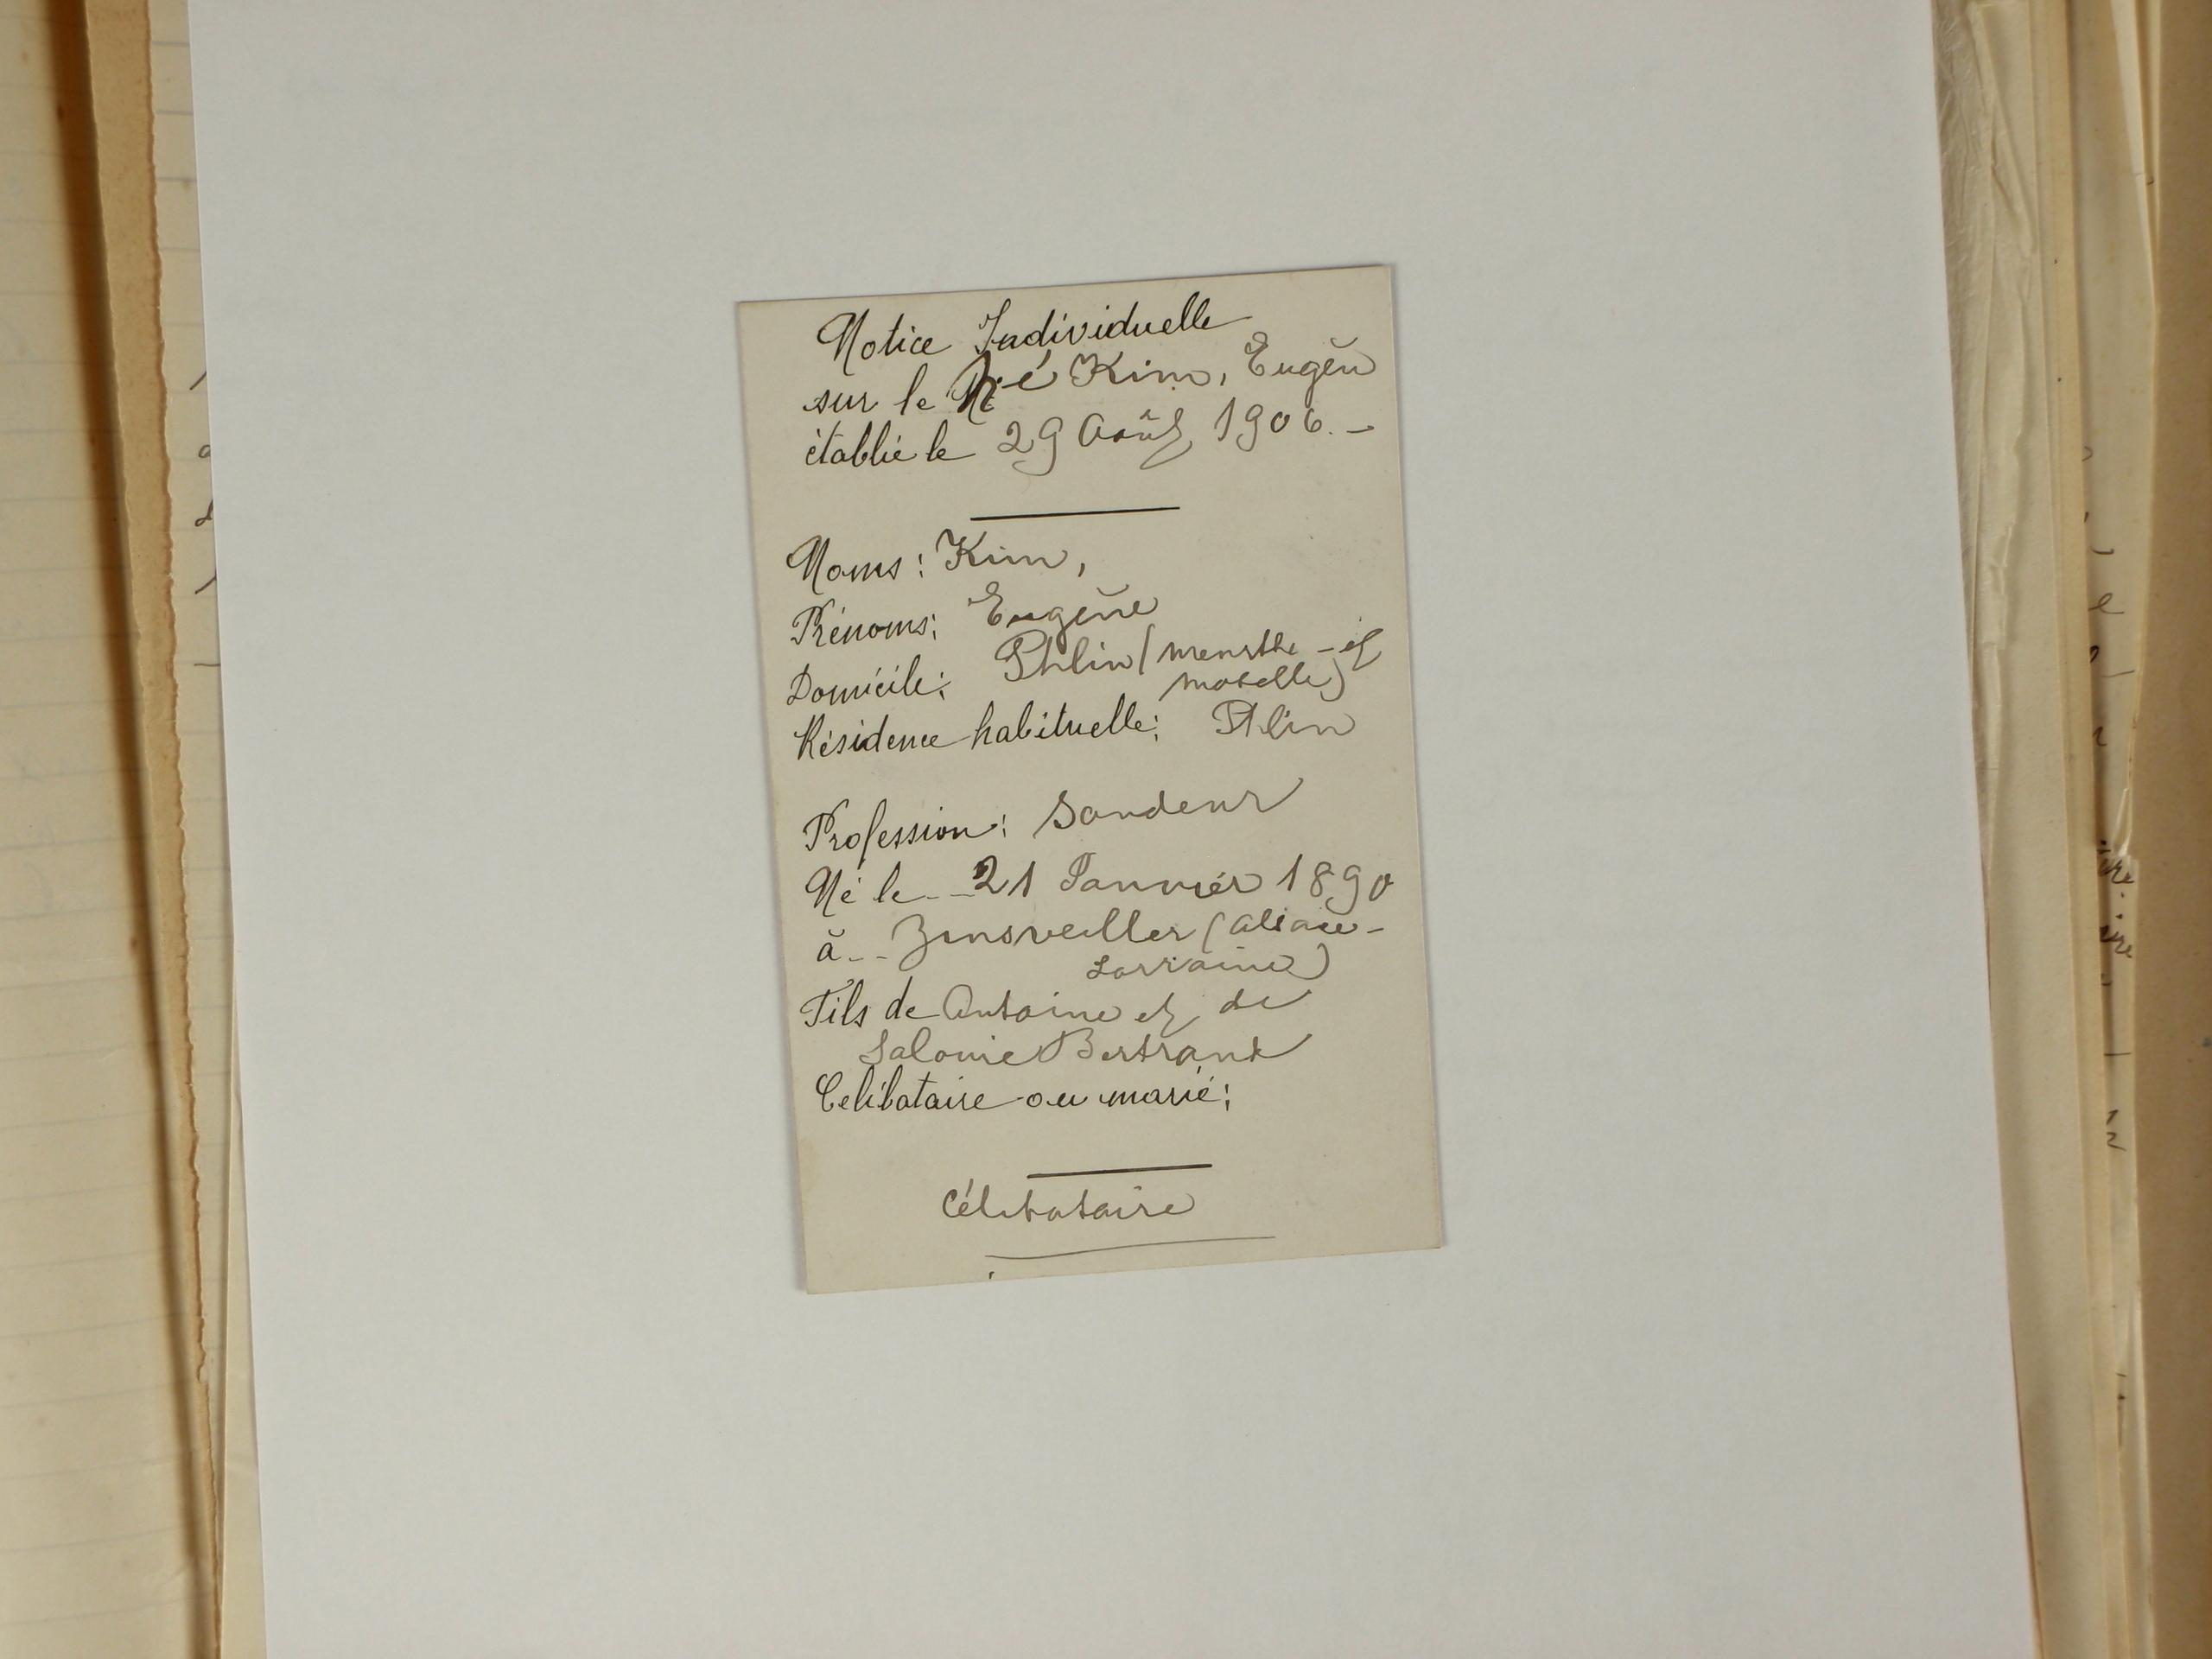 Notice Individuelle
sur le Né Kim, Eugèn
établie le 29 Août 1906.-
Noms: Kim,
Prénoms: Eugène
Domicile: Phlin (meurthe - et
moselle)
Résidence habituelle: Phlin
Profession: Sondeur
Né le -- 21 Janvier 1890
à -- Zinsveiller (alsace-
Lorraine)
Fils de Antoine et de
Salomé Bertrand
Celibataire ou marié:
Célibataire